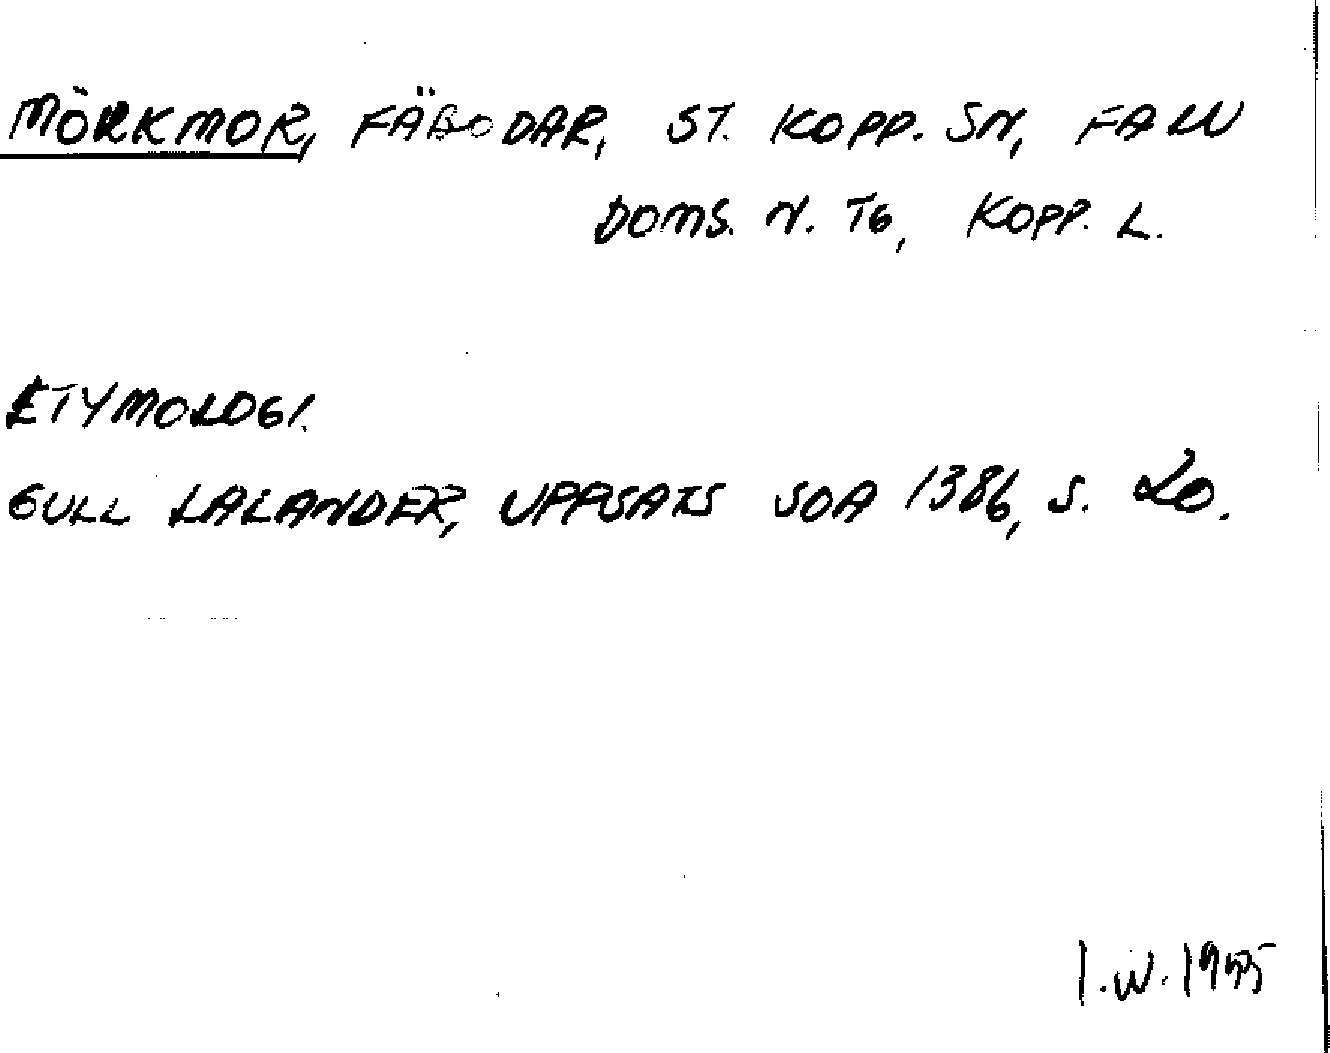 MÖRKMOR, FÄBODAR, ST. KOPP. SN, FALU
DOMS. N. TG, KOPP. L.
ETYMOLOGI.
GULL LALANDER, UPPSATS SOA 1386, S. 20.
I.W. 1955